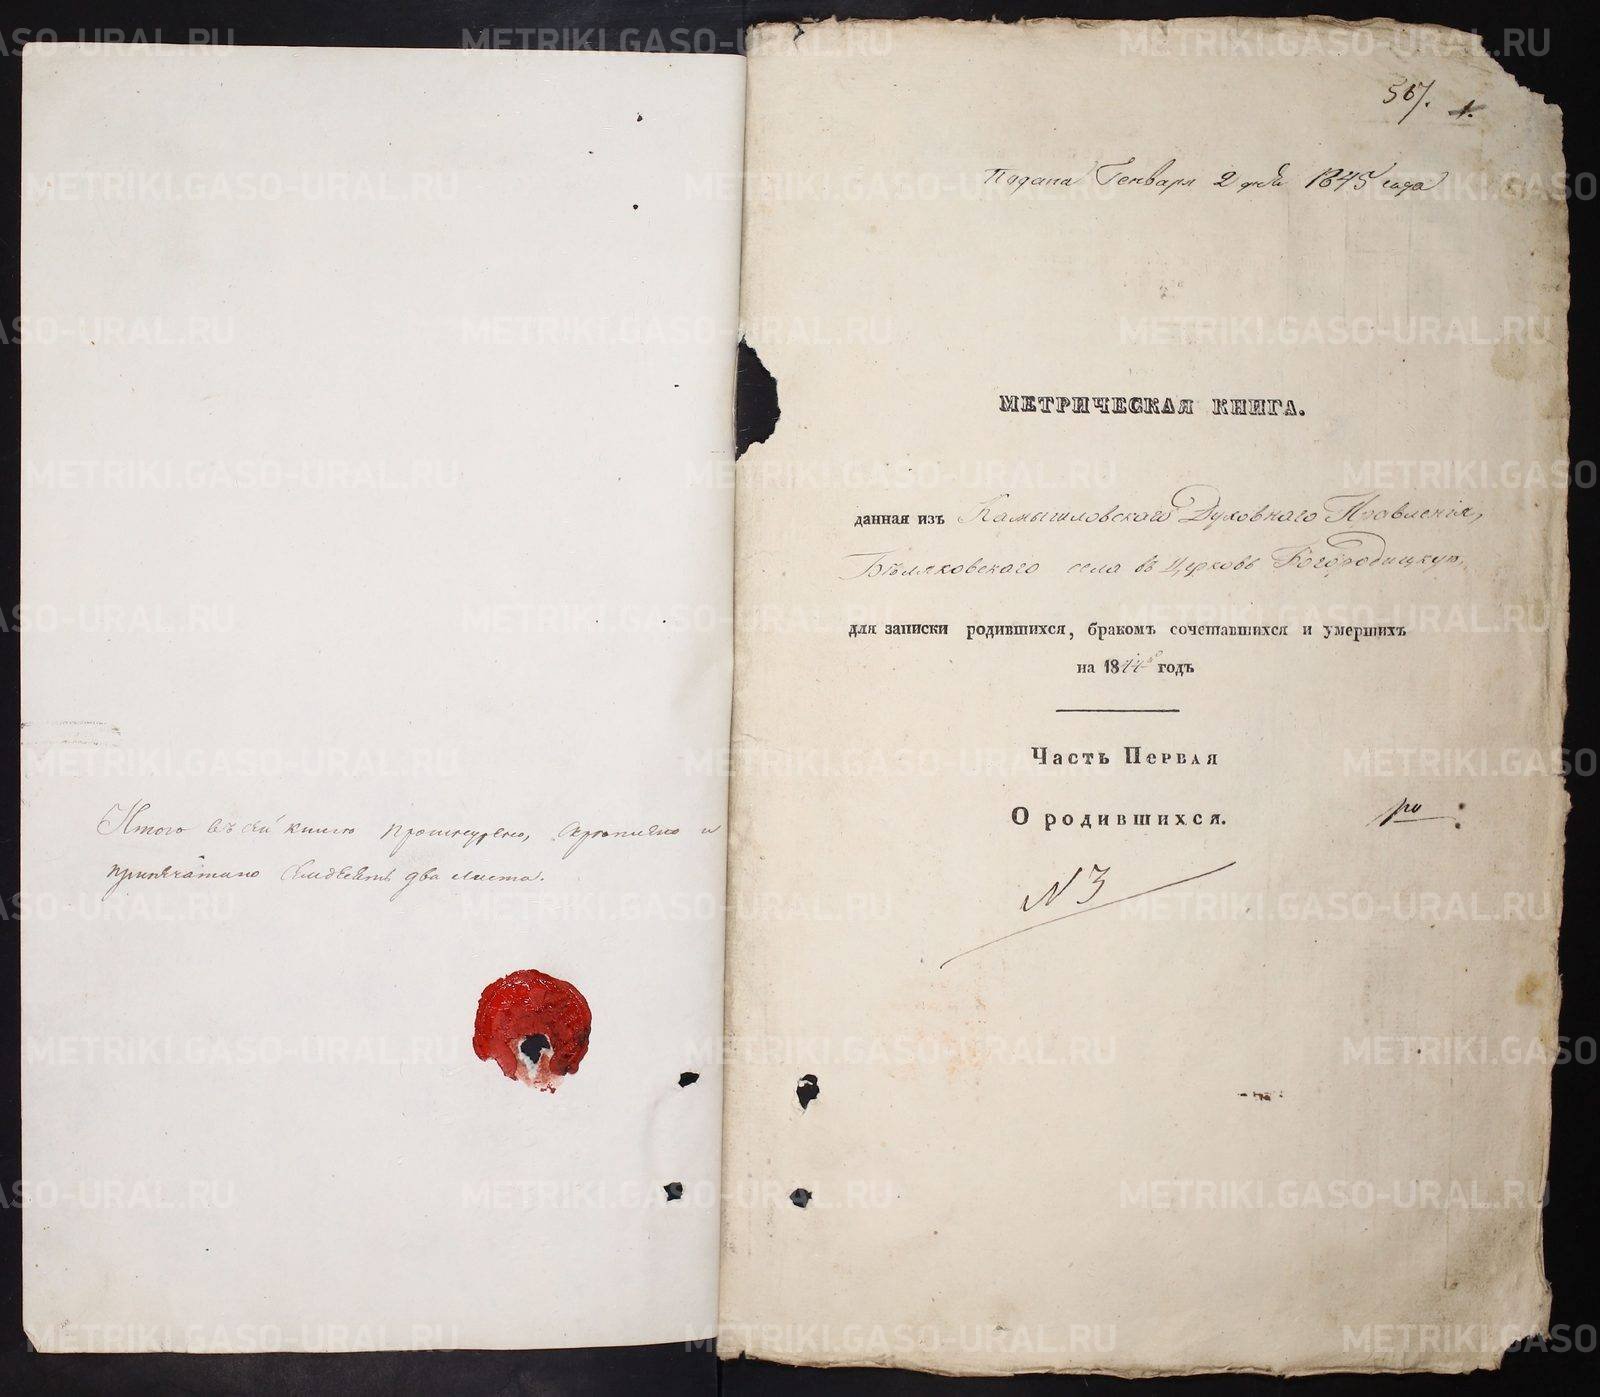 Итого въ сей книге прошнурено, скреплено и
припечатано семдесятъ два листа.
567. 1.
Подана Генваря 2 дня 1845 года
МЕТРИЧЕСКАЯ КНИГА.
данная изъ Камышловскаго Духовнаго Правленія,
Бѣляковскаго села въ Церковь Богородицкую,
для записки родившихся, бракомъ сочетавшихся и умершихъ
на 1844й годъ
Часть Первая
О родившихся.
N 3
METRIKI.GASO-URAL.RU